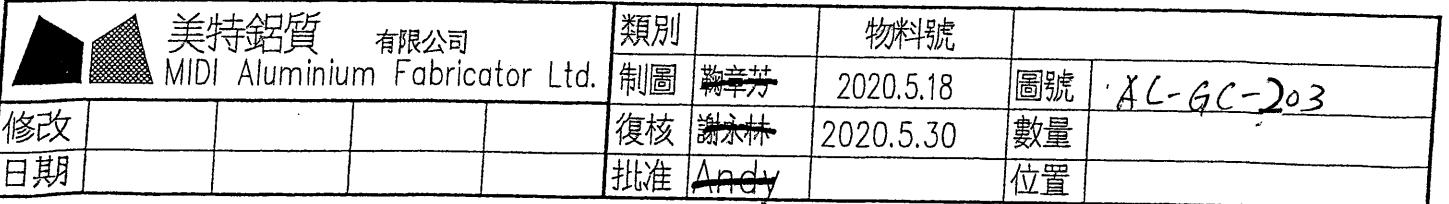 美特鋁質 有限公司
MIDI Aluminium Fabricator Ltd.
類別 物料號
制圖 鞠章芳 2020.5.18 圖號 AL-GC-203
修改 復核 謝永林 2020.5.30 數量
日期 批准 Andy 位置